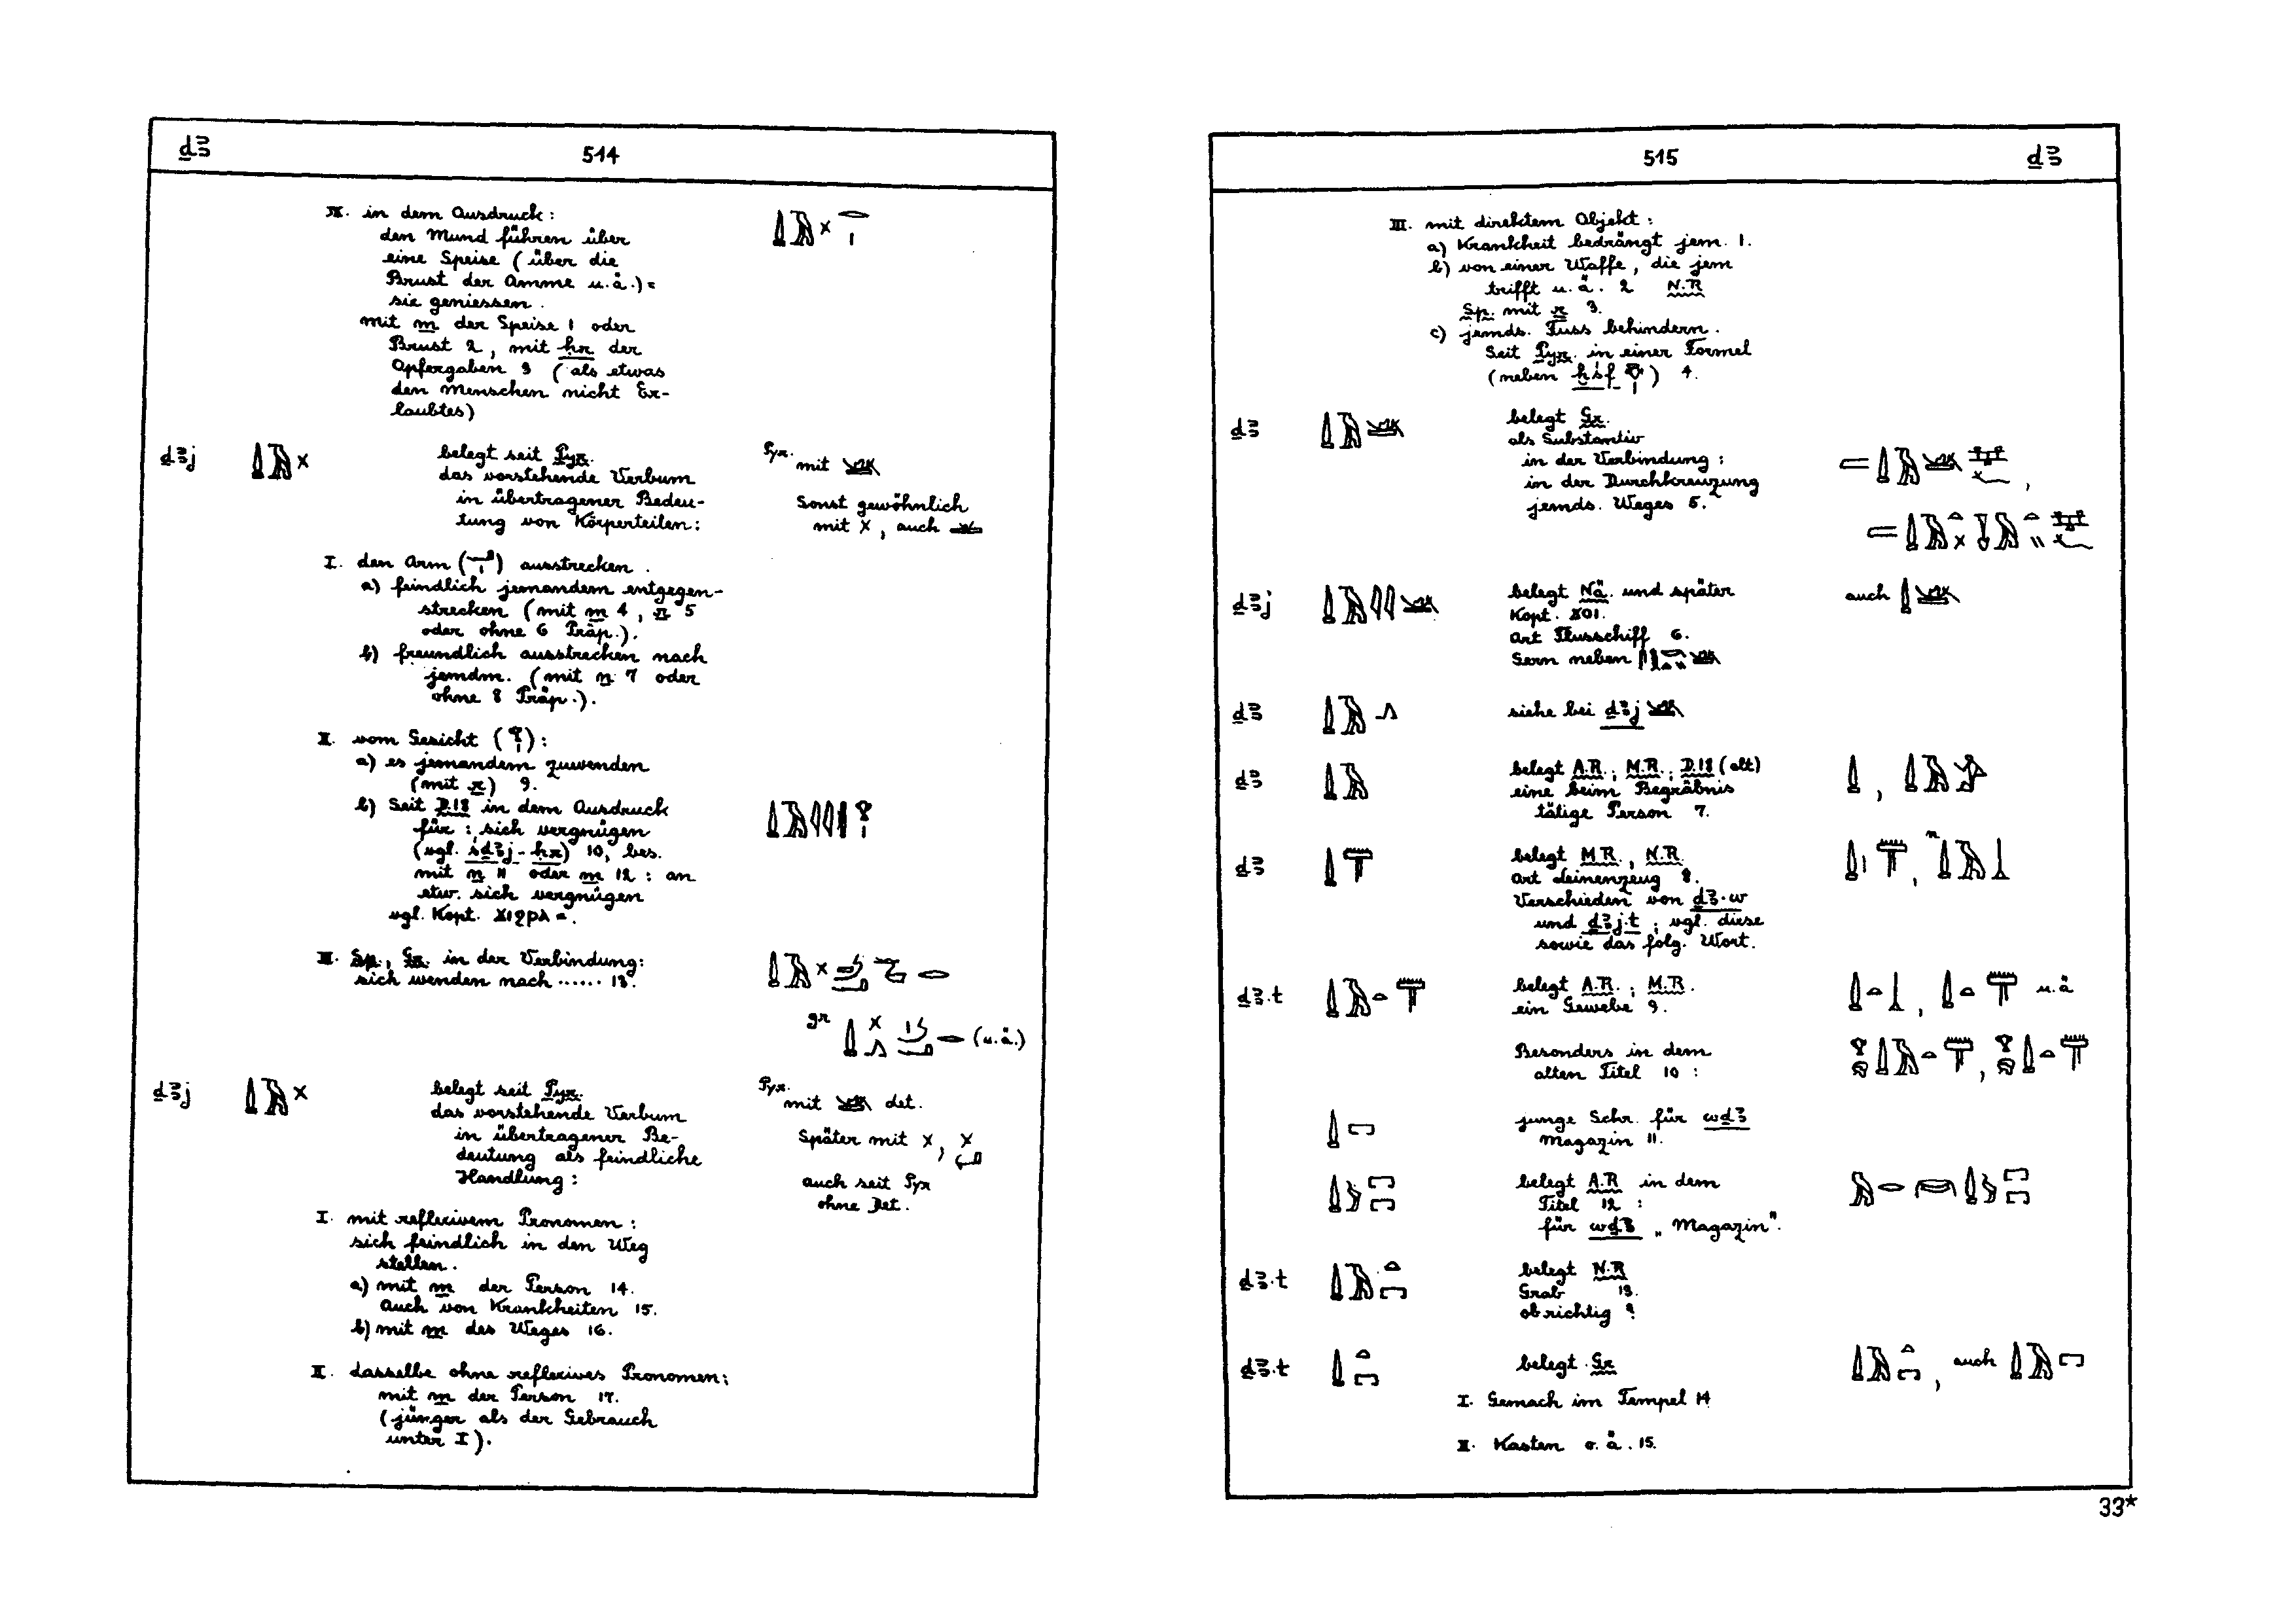 ḏꜣ
514
IV. in dem Ausdruck:
den Mund führen über
eine Speise (über die
Brust der Amme u.ä.) =
sie geniessen.
mit m der Speise 1 oder
Brust 2, mit ḥr der
Opfergaben 3 (als etwas
den Menschen nicht Er-
laubtes)
ḏꜣj
belegt seit Pyr.
das vorstehende Verbum
in übertragener Bedeu-
tung von Körperteilen:
Pyr. mit
Sonst gewöhnlich
mit x, auch
I. den Arm ( ) ausstrecken.
a) feindlich jemandem entgegen-
strecken (mit m 4, r 5
oder ohne 6 Präp.).
b) freundlich ausstrecken nach
jemdm. (mit n 7 oder
ohne 8 Präp.).
II. vom Gesicht ( ):
a) es jemandem zuwenden
(mit r) 9.
b) Seit D.18 in dem Ausdruck
für: sich vergnügen
(vgl. śḏꜣj-ḥr) 10, bes.
mit n 11 oder m 12: an
etw. sich vergnügen
vgl. Kopt. ϫⲓϩⲣⲁ=.
III. Sp., Gr. in der Verbindung:
sich wenden nach ...... 13.
gr (u.ä.)
ḏꜣj
belegt seit Pyr.
das vorstehende Verbum
in übertragener Be-
deutung als feindliche
Handlung:
Pyr. mit det.
Später mit x,
auch seit Pyr
ohne Det.
I. mit reflexivem Pronomen:
sich feindlich in den Weg
stellen.
a) mit m der Person 14.
Auch von Krankheiten 15.
b) mit m des Weges 16.
II. dasselbe ohne reflexives Pronomen:
mit m der Person 17.
(jünger als der Gebrauch
unter I).
515
ḏꜣ
III. mit direktem Objekt:
a) Krankheit bedrängt jem. 1.
b) von einer Waffe, die jem
trifft u.ä. 2 N.R
Sp. mit r 3.
c) jemds. Fuss behindern.
Seit Pyr. in einer Formel
(neben ḫśf ) 4.
ḏꜣ
belegt Gr.
als Substantiv
in der Verbindung:
in der Durchkreuzung
jemds. Weges 5.
ḏꜣj
belegt Nä. und später
Kopt. ϫⲟⲓ.
Art Flusschiff 6.
Gern neben
auch
ḏꜣ
siehe bei ḏꜣj
ḏꜣ
belegt A.R.; M.R.; D.18 (alt)
eine beim Begräbnis
tätige Person 7.
ḏꜣ
belegt M.R., N.R.
Art Leinenzeug 8.
Verschieden von ḏꜣ.w
und ḏꜣj.t; vgl. diese
sowie das folg. Wort.
ḏꜣ.t
belegt A.R.; M.R.
ein Gewebe 9.
u.ä
Besonders in dem
alten Titel 10:
junge Schr. für wḏꜣ
Magazin 11.
belegt A.R in dem
Titel 12:
für wḏꜣ „Magazin".
ḏꜣ.t
belegt N.R
Grab 13.
ob richtig?
ḏꜣ.t
belegt Gr
auch
I. Gemach im Tempel 14
II. Kasten o.ä. 15.
33*